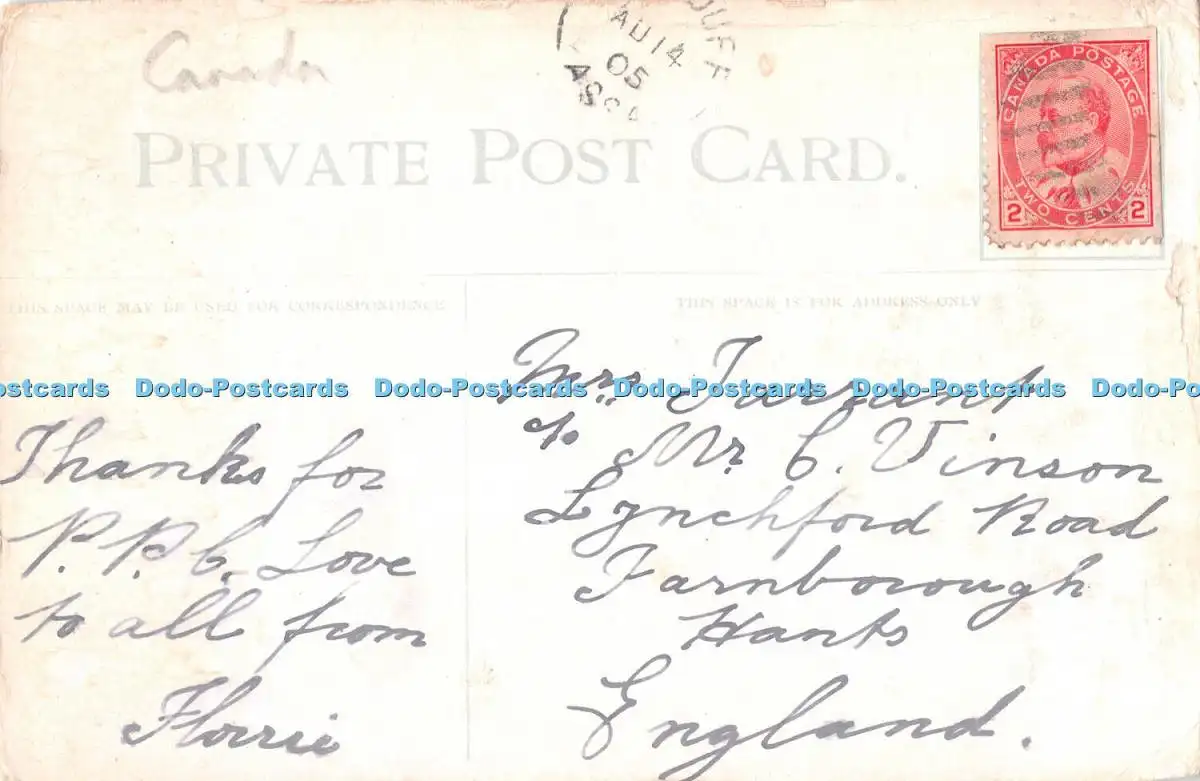 Canada
OUFF
AU 14
05
ASSA
PRIVATE POST CARD.
CANADA POSTAGE
2 TWO CENTS 2
THIS SPACE MAY BE USED FOR CORRESPONDENCE
THIS SPACE IS FOR ADDRESS ONLY
Thanks for
P. P. C. Love
to all from
Florrie
Mrs. Tarrant
c/o Mr. C. Vinson
Lynchford Road
Farnborough
Hants
England.
Postcards Dodo-Postcards Dodo-Postcards Dodo-Postcards Dodo-Postcards Dodo-Post